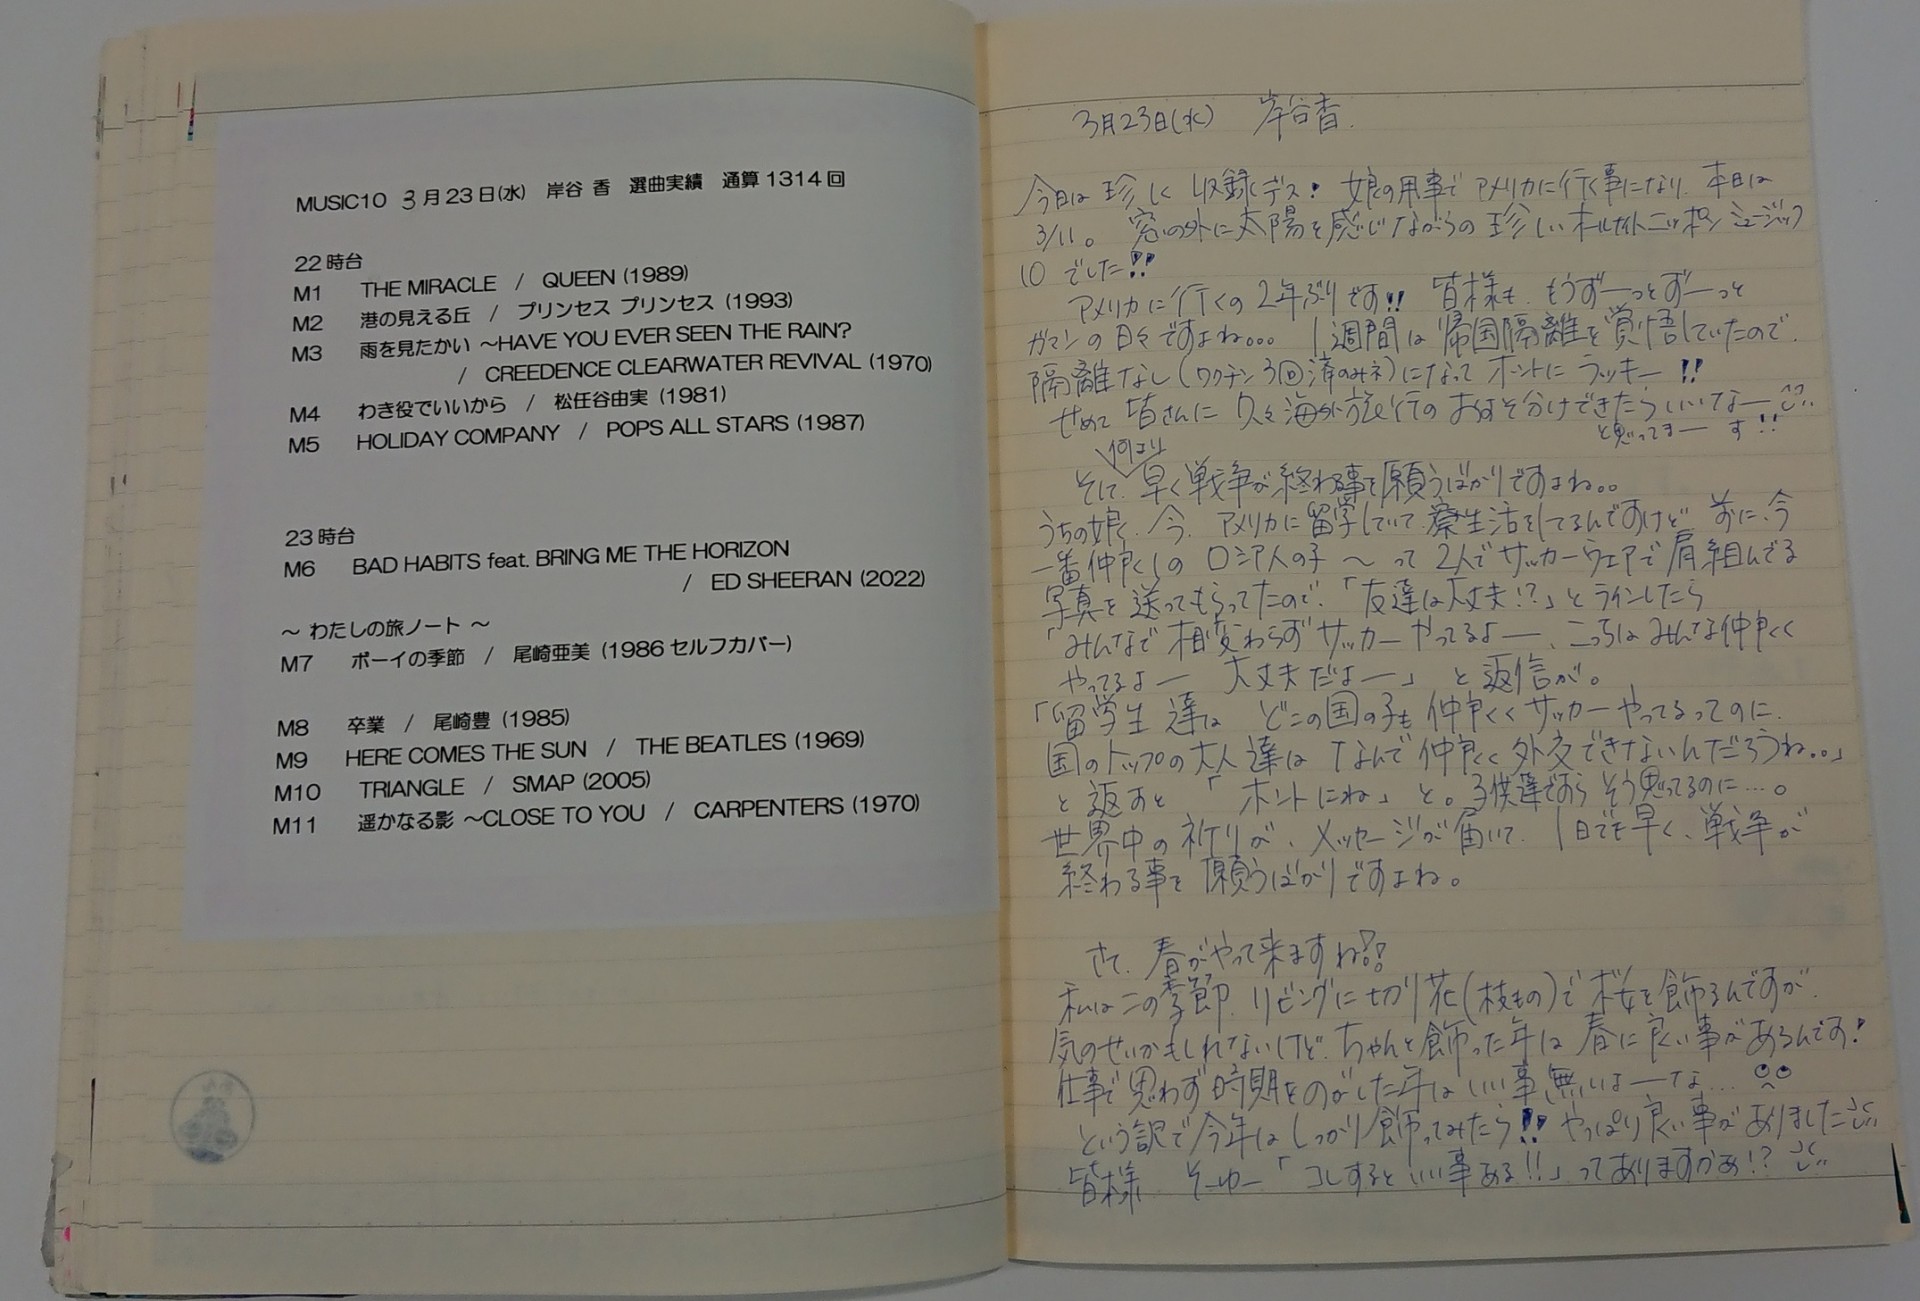 MUSIC10 3月23日(水) 岸谷 香 選曲実績 通算1314回
22時台
M1 THE MIRACLE / QUEEN (1989)
M2 港の見える丘 / プリンセス プリンセス (1993)
M3 雨を見たかい ～HAVE YOU EVER SEEN THE RAIN?
/ CREEDENCE CLEARWATER REVIVAL (1970)
M4 わき役でいいから / 松任谷由実 (1981)
M5 HOLIDAY COMPANY / POPS ALL STARS (1987)
23時台
M6 BAD HABITS feat. BRING ME THE HORIZON
/ ED SHEERAN (2022)
～ わたしの旅ノート ～
M7 ボーイの季節 / 尾崎亜美 (1986 セルフカバー)
M8 卒業 / 尾崎豊 (1985)
M9 HERE COMES THE SUN / THE BEATLES (1969)
M10 TRIANGLE / SMAP (2005)
M11 遥かなる影 ～CLOSE TO YOU / CARPENTERS (1970)
3月23日(水) 岸谷香.
今日は珍しく収録デス! 娘の用事でアメリカに行く事になり、本日は
3/11。窓の外に太陽を感じながらの珍しいオールナイトニッポンミュージック
10でした!!
アメリカに行くの2年ぶりです!! 皆様も、もうずーっとずーっと
ガマンの日々ですよね... 1週間は帰国隔離を覚悟していたので、
隔離なし(ワクチン3回済のみネ)になってホントにラッキー!!
せめて皆さんに久々海外旅行のおすそ分けできたらいいなー
と思ってまーす!!
そして、何より早く戦争が終わる事を願うばかりですよね。。
うちの娘、今、アメリカに留学していて寮生活をしてるんですけど、前に、今
一番仲良しのロシア人の子～って2人でサッカーウェアで肩組んでる
写真を送ってもらってたので、「友達は大丈夫!?」とラインしたら
「みんなで相変わらずサッカーやってるよー、こっちはみんな仲良く
やってるよー 大丈夫だよー」と返信が。
「留学生達はどこの国の子も仲良くサッカーやってるってのに、
国のトップの大人達はなんで仲良く外交できないんだろうね。。」
と返すと「ホントにね」と。子供達ですらそう思ってるのに…。
世界中の祈りが、メッセージが届いて、1日でも早く、戦争が
終わる事を願うばかりですよね。
さて、春がやって来ますね!!
私はこの季節、リビングに切り花(枝もの)で桜を飾るんですが、
気のせいかもしれないけど、ちゃんと飾った年は春に良い事があるんです!
仕事で思わず時期をのがした年はいい事無いよーな...
という訳で今年はしっかり飾ってみたら!! やっぱり良い事がありました
皆様、そーゆー「コレするといい事ある!!」ってありますかぁ!?